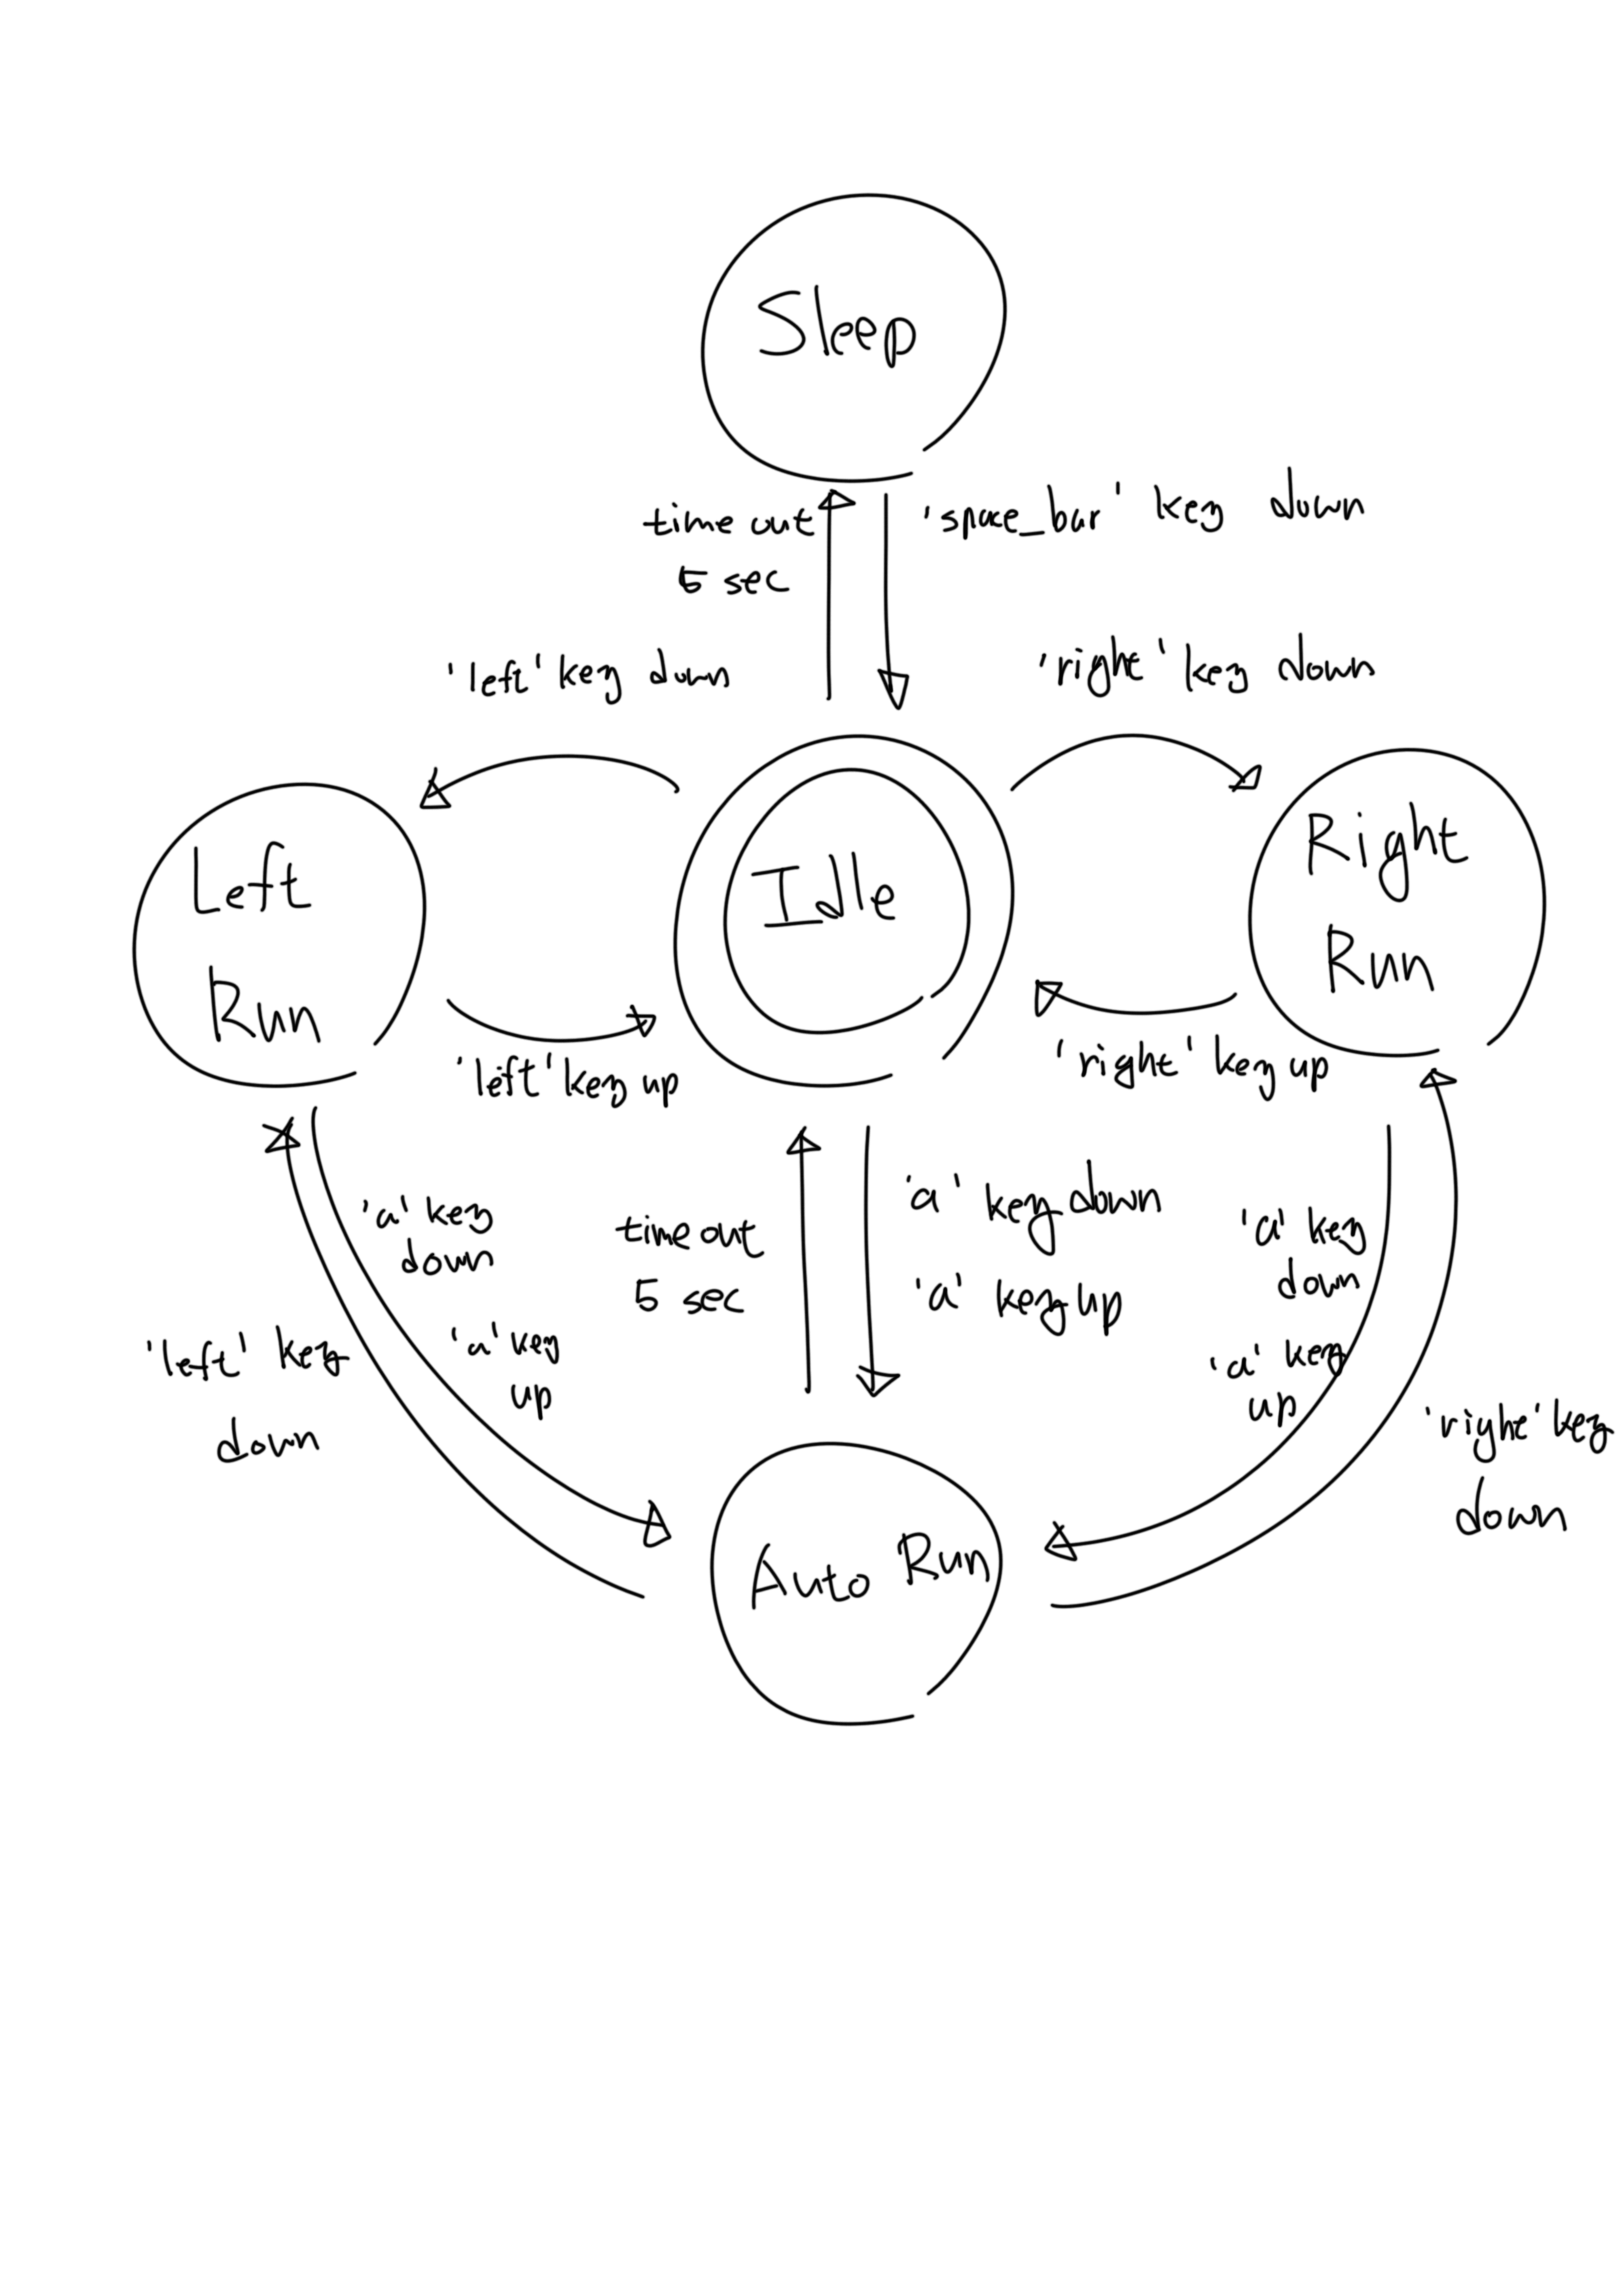 Sleep
time out
5 sec
'space_bar' key down
'left' key down
'right' key down
Left
Run
Idle
Right
Run
'left' key up
'right' key up
'a' key
down
'a' key
up
'left' key
down
time out
5 sec
'a' key down
'a' key up
'a' key
down
'a' key
up
'right' key
down
Auto Run